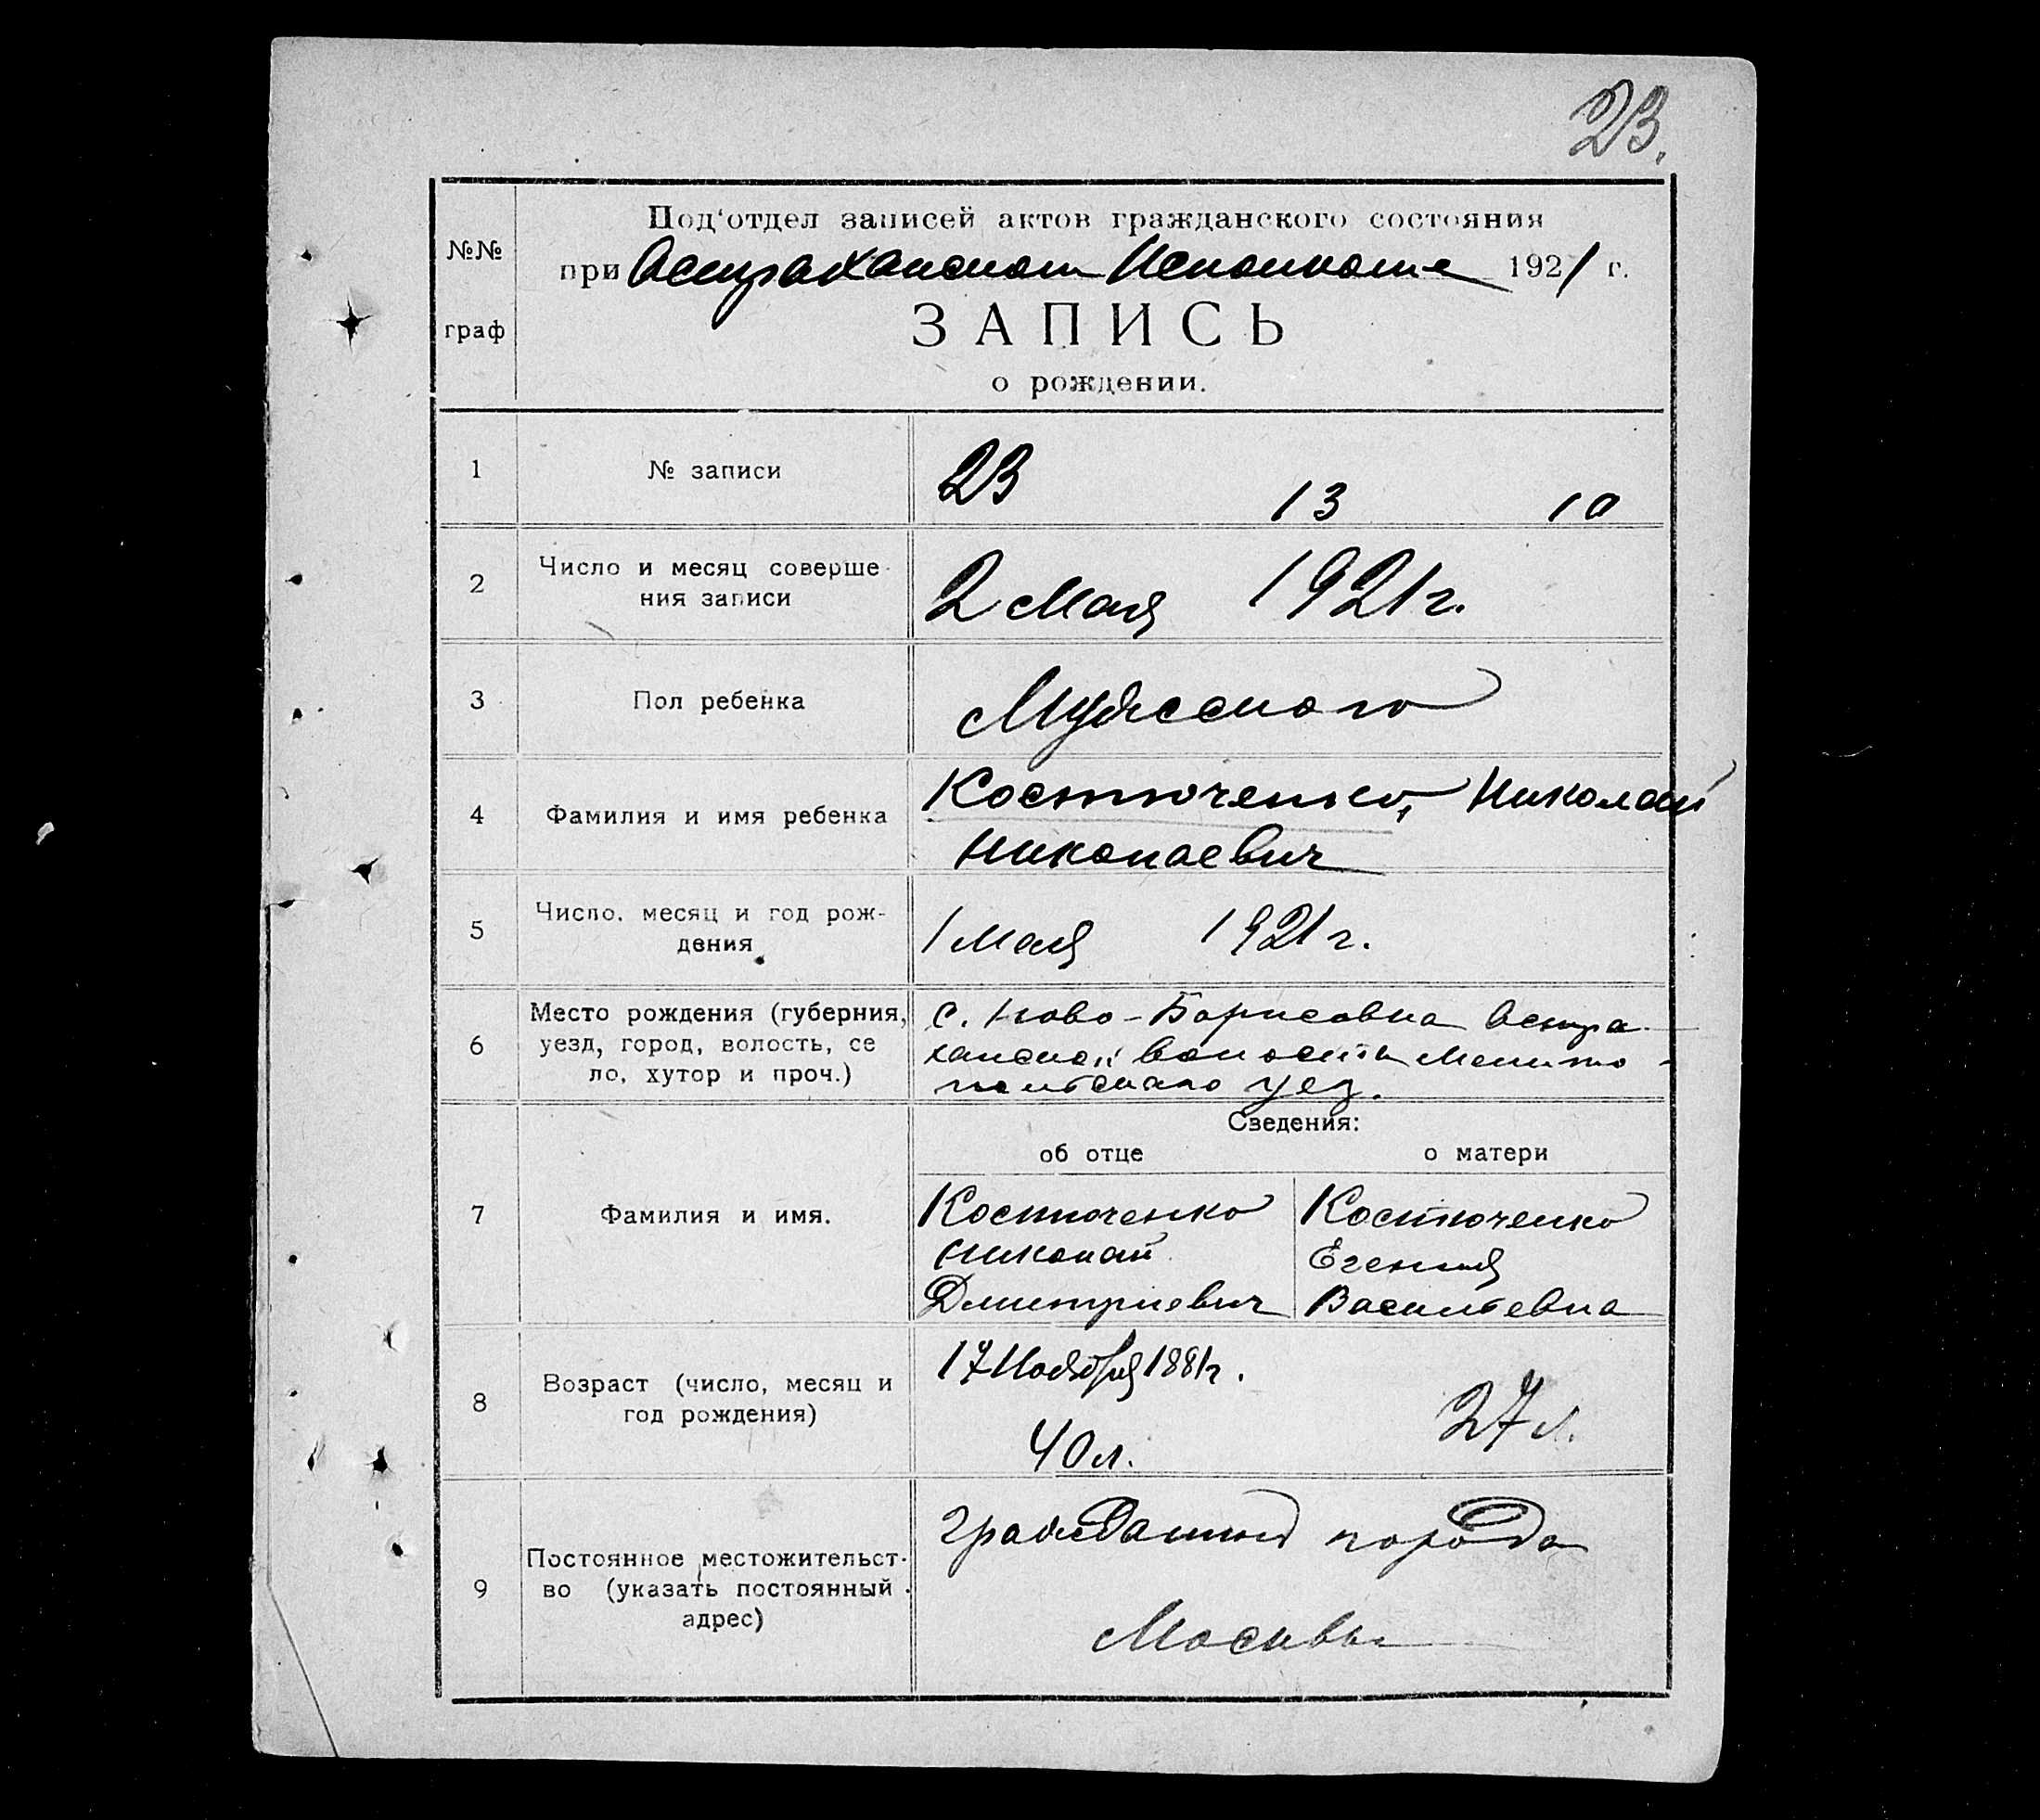 23.
№№
граф
Под‘отдел записей актов гражданского состояния
при Астраханском Исполкоме 1921 г.
ЗАПИСЬ
о рождении.
1
№ записи
23 13 10
2
Число и месяц соверше-
ния записи
2 Мая 1921 г.
3
Пол ребенка
Мужского
4
Фамилия и имя ребенка
Костюченко, Николай
Николаевич
5
Число, месяц и год рож-
дения
1 Мая 1921 г.
6
Место рождения (губерния,
уезд, город, волость, се
ло, хутор и проч.)
с. Ново-Борисовка Астра-
ханской волости Мелито-
польского уез.
Сведения:
об отце
о матери
7
Фамилия и имя.
Костюченко
Николай
Дмитриевич
Костюченко
Егения
Васильевна
8
Возраст (число, месяц и
год рождения)
17 Ноября 1881 г.
40 л.
27 л.
9
Постоянное местожительст-
во (указать постоянный
адрес)
города
Москвы